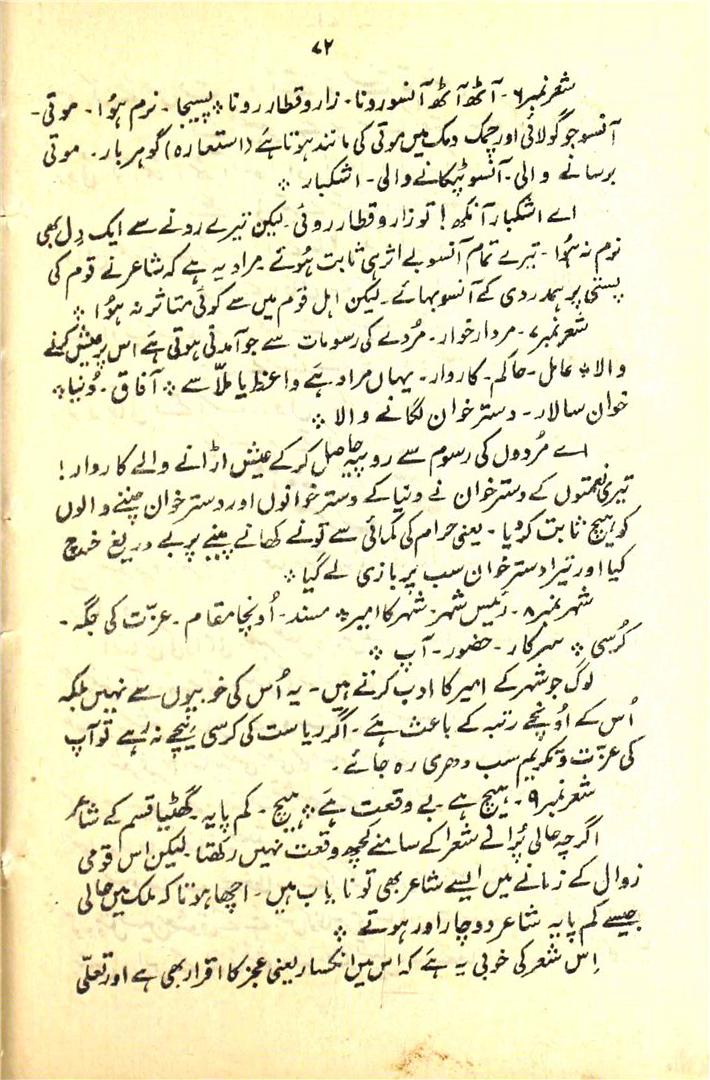 ۷۲
شعر نمبر ۶۔ آٹھ آٹھ آنسو رونا۔ زار و قطار رونا ٭ پسیجا۔ نرم ہؤا۔ موتی۔
آنسو جو گولائی اور چمک دمک میں موتی کی مانند ہوتا ہے (استعارہ) گوہر بار۔ موتی
برسانے والی۔ آنسو ٹپکانے والی۔ اشکبار ٭
اے اشکبار آنکھ! تو زار و قطار روئی۔ لیکن تیرے رونے سے ایک دِل بھی
نرم نہ ہؤا۔ تیرے تمام آنسو بے اثر ہی ثابت ہُوئے۔ مراد یہ ہے کہ شاعر نے قوم کی
پستی پر ہمدردی کے آنسو بہائے۔ لیکن اہل قوم میں سے کوئی متاثر نہ ہؤا ٭
شعر نمبر ۷۔ مردار خوار۔ مُردے کی رسومات سے جو آمدنی ہوتی ہے اس پر عیش کرنے
والا ٭ عامل۔ حاکم۔ کاروار۔ یہاں مراد ہے واعظ یا ملّا سے ٭ آفاق۔ دُنیا ٭
خوان سالار۔ دسترخوان لگانے والا ٭
اے مُردوں کی رسوم سے روپیہ حاصل کرکے عیش اڑانے والے کاروار!
تیری نعمتوں کے دسترخوان نے دنیا کے دسترخوانوں اور دسترخوان چننے والوں
کو ہیچ ثابت کر دیا۔ یعنی حرام کی کمائی سے تو نے کھانے پینے پر بے دریغ خرچ
کیا اور تیرا دسترخوان سب پر بازی لے گیا ٭
شہر نمبر ۸۔ رئیس شہر۔ شہر کا امیر ٭ مسند۔ اُونچا مقام۔ عزّت کی جگہ۔
کُرسی ٭ سرکار۔ حضور۔ آپ ٭
لوگ جو شہر کے امیر کا ادب کرتے ہیں۔ یہ اُس کی خوبیوں سے نہیں بلکہ
اُس کے اُونچے رتبہ کے باعث ہے۔ اگر ریاست کی کرسی نیچے نہ رہے تو آپ
کی عزّت و تکریم سب دھری رہ جائے۔
شعر نمبر ۹۔ ہیچ ہے۔ بے وقعت ہے ٭ ہیچ۔ کم پایہ۔ گھٹیا قسم کے شاعر
اگرچہ حالی پُرانے شعرا کے سامنے کچھ وقعت نہیں رکھتا۔ لیکن اس قومی
زوال کے زمانے میں ایسے شاعر بھی تو نایاب ہیں۔ اچھا ہوتا کہ ملک میں حالی
جیسے کم پایہ شاعر دو چار اور ہوتے ٭
اِس شعر کی خوبی یہ ہے کہ اس میں انکسار یعنی عجز کا اقرار بھی ہے اور تعلّی